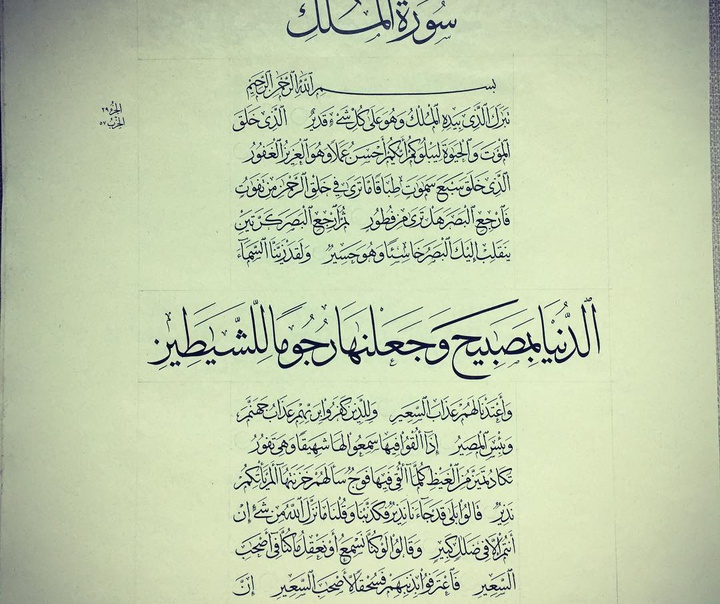 سُورَةُ الْمُلْكِ
بِسْمِ اللَّهِ الرَّحْمَٰنِ الرَّحِيمِ
الجزء ٢٩
الحزب ٥٧
تَبَٰرَكَ الَّذِي بِيَدِهِ الْمُلْكُ وَهُوَ عَلَىٰ كُلِّ شَيْءٍ قَدِيرٌ الَّذِي خَلَقَ
الْمَوْتَ وَالْحَيَوٰةَ لِيَبْلُوَكُمْ أَيُّكُمْ أَحْسَنُ عَمَلًا وَهُوَ الْعَزِيزُ الْغَفُورُ
الَّذِي خَلَقَ سَبْعَ سَمَٰوَٰتٍ طِبَاقًا مَّا تَرَىٰ فِي خَلْقِ الرَّحْمَٰنِ مِنْ تَفَٰوُتٍ
فَارْجِعِ الْبَصَرَ هَلْ تَرَىٰ مِنْ فُطُورٍ ثُمَّ ارْجِعِ الْبَصَرَ كَرَّتَيْنِ
يَنْقَلِبْ إِلَيْكَ الْبَصَرُ خَاسِئًا وَهُوَ حَسِيرٌ وَلَقَدْ زَيَّنَّا السَّمَاءَ
الدُّنْيَا بِمَصَٰبِيحَ وَجَعَلْنَٰهَا رُجُومًا لِلشَّيَٰطِينِ
وَأَعْتَدْنَا لَهُمْ عَذَابَ السَّعِيرِ وَلِلَّذِينَ كَفَرُوا بِرَبِّهِمْ عَذَابُ جَهَنَّمَ
وَبِئْسَ الْمَصِيرُ إِذَا أُلْقُوا فِيهَا سَمِعُوا لَهَا شَهِيقًا وَهِيَ تَفُورُ
تَكَادُ تَمَيَّزُ مِنَ الْغَيْظِ كُلَّمَا أُلْقِيَ فِيهَا فَوْجٌ سَأَلَهُمْ خَزَنَتُهَا أَلَمْ يَأْتِكُمْ
نَذِيرٌ قَالُوا بَلَىٰ قَدْ جَاءَنَا نَذِيرٌ فَكَذَّبْنَا وَقُلْنَا مَا نَزَّلَ اللَّهُ مِنْ شَيْءٍ إِنْ
أَنْتُمْ إِلَّا فِي ضَلَٰلٍ كَبِيرٍ وَقَالُوا لَوْ كُنَّا نَسْمَعُ أَوْ نَعْقِلُ مَا كُنَّا فِي أَصْحَٰبِ
السَّعِيرِ فَاعْتَرَفُوا بِذَنْبِهِمْ فَسُحْقًا لِأَصْحَٰبِ السَّعِيرِ إِنَّ